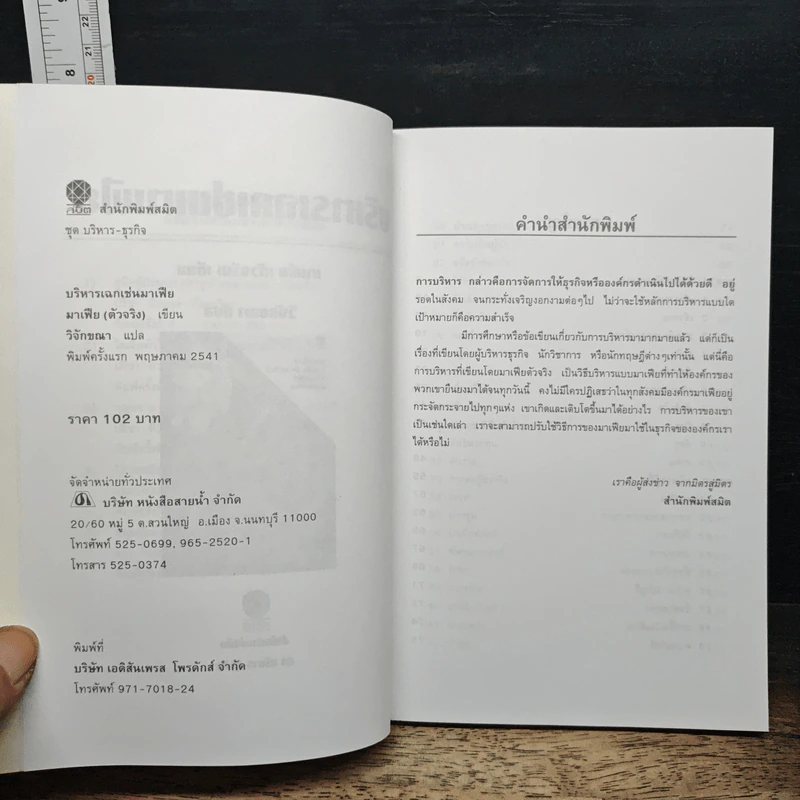 9
22
21
8
20
สมิต
สำนักพิมพ์สมิต
ชุด บริหาร-ธุรกิจ
บริหารเฉกเช่นมาเฟีย
มาเฟีย (ตัวจริง) เขียน
วิจักขณา แปล
พิมพ์ครั้งแรก พฤษภาคม 2541
ราคา 102 บาท
จัดจำหน่ายทั่วประเทศ
บริษัท หนังสือสายน้ำ จำกัด
20/60 หมู่ 5 ต.สวนใหญ่ อ.เมือง จ.นนทบุรี 11000
โทรศัพท์ 525-0699, 965-2520-1
โทรสาร 525-0374
พิมพ์ที่
บริษัท เอดิสันเพรส โพรดักส์ จำกัด
โทรศัพท์ 971-7018-24
คำนำสำนักพิมพ์
การบริหาร กล่าวคือการจัดการให้ธุรกิจหรือองค์กรดำเนินไปได้ด้วยดี อยู่
รอดในสังคม จนกระทั่งเจริญงอกงามต่อๆไป ไม่ว่าจะใช้หลักการบริหารแบบใด
เป้าหมายก็คือความสำเร็จ
มีการศึกษาหรือข้อเขียนเกี่ยวกับการบริหารมามากมายแล้ว แต่ก็เป็น
เรื่องที่เขียนโดยผู้บริหารธุรกิจ นักวิชาการ หรือนักทฤษฎีต่างๆเท่านั้น แต่นี่คือ
การบริหารที่เขียนโดยมาเฟียตัวจริง เป็นวิธีบริหารแบบมาเฟียที่ทำให้องค์กรของ
พวกเขายืนยงมาได้จนทุกวันนี้ คงไม่มีใครปฏิเสธว่าในทุกสังคมมีองค์กรมาเฟียอยู่
กระจัดกระจายไปทุกๆแห่ง เขาเกิดและเติบโตขึ้นมาได้อย่างไร การบริหารของเขา
เป็นเช่นใดเล่า เราจะสามารถปรับใช้วิธีการของมาเฟียมาใช้ในธุรกิจขององค์กรเรา
ได้หรือไม่
เราคือผู้ส่งข่าว จากมิตรสู่มิตร
สำนักพิมพ์สมิต